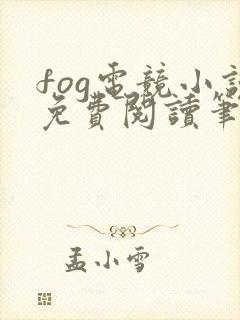 fog電競小說
免費閱讀筆
孟小雪